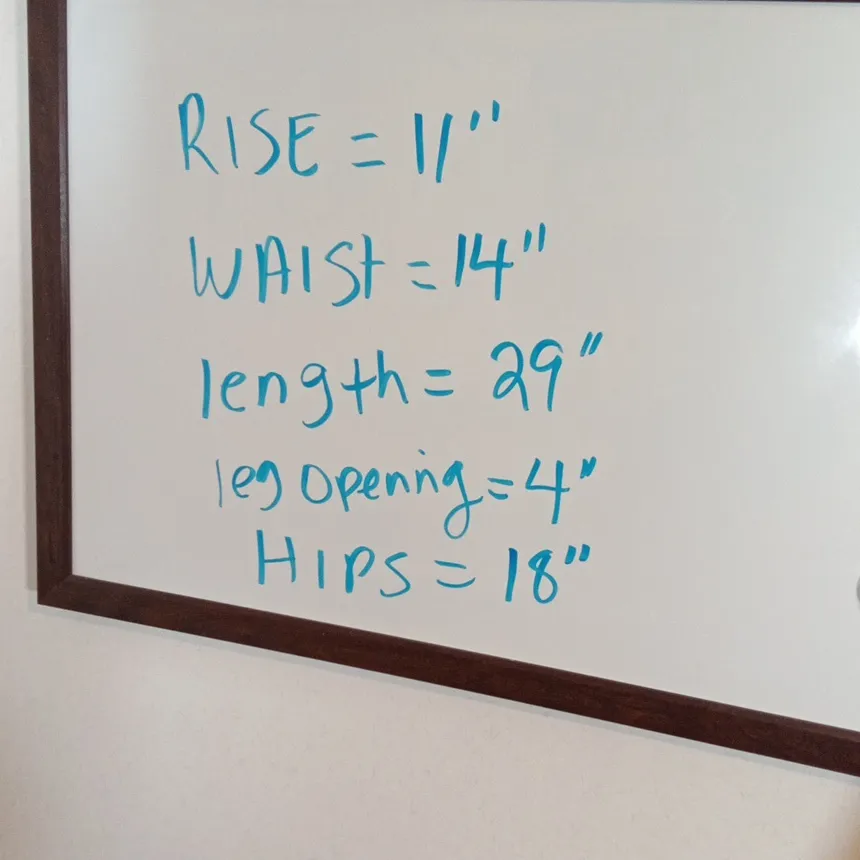 RISE = 11"
WAIST = 14"
length = 29"
leg opening = 4"
HIPS = 18"